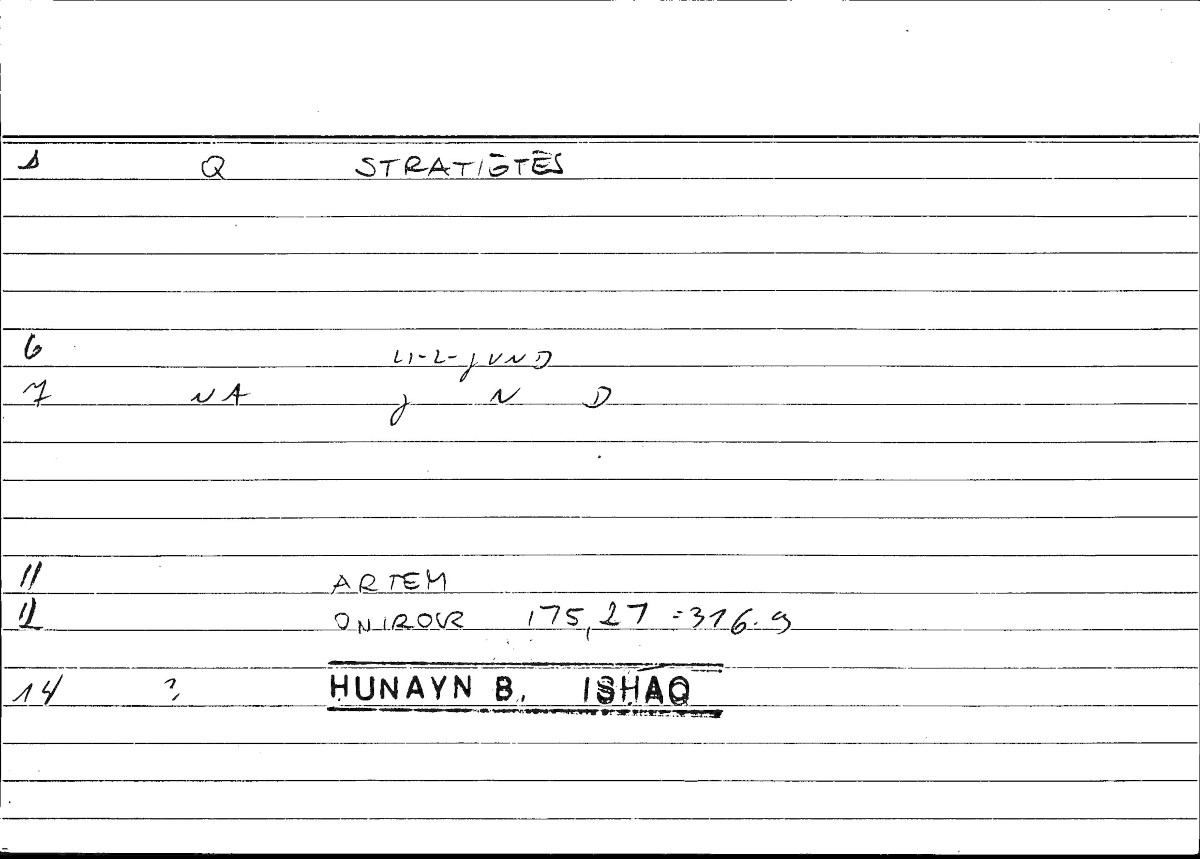 1 Q STRATIŌTĒS
6 LI-L-JUND
7 NA J N D
11 ARTEM
12 ONIROCR 175,27 =316.9
14 ? HUNAYN B. ISHAQ